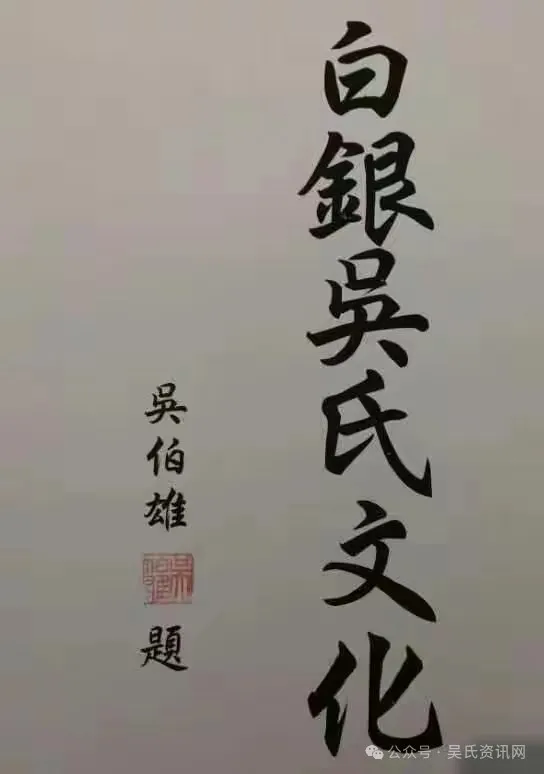 白銀吳氏文化
吳伯雄
題
公众号·吴氏资讯网